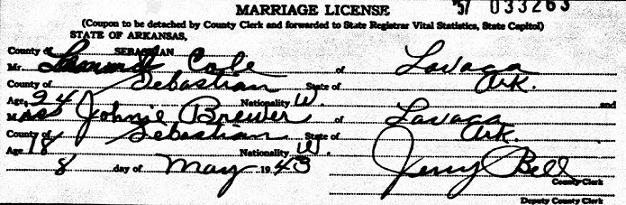 MARRIAGE LICENSE '57 033263
(Coupon to be detached by County Clerk and forwarded to State Registrar Vital Statistics, State Capitol)
STATE OF ARKANSAS,
County of SEBASTIAN
Mr. Cole of Lavaca
County of Sebastian State of Ark.
Age 24 Nationality W. and
Miss Johnie Brewer of Lavaca
County of Sebastian State of Ark.
Age 18 Nationality W.
8 day of May 1943 Jerry Bell
County Clerk
Deputy County Clerk